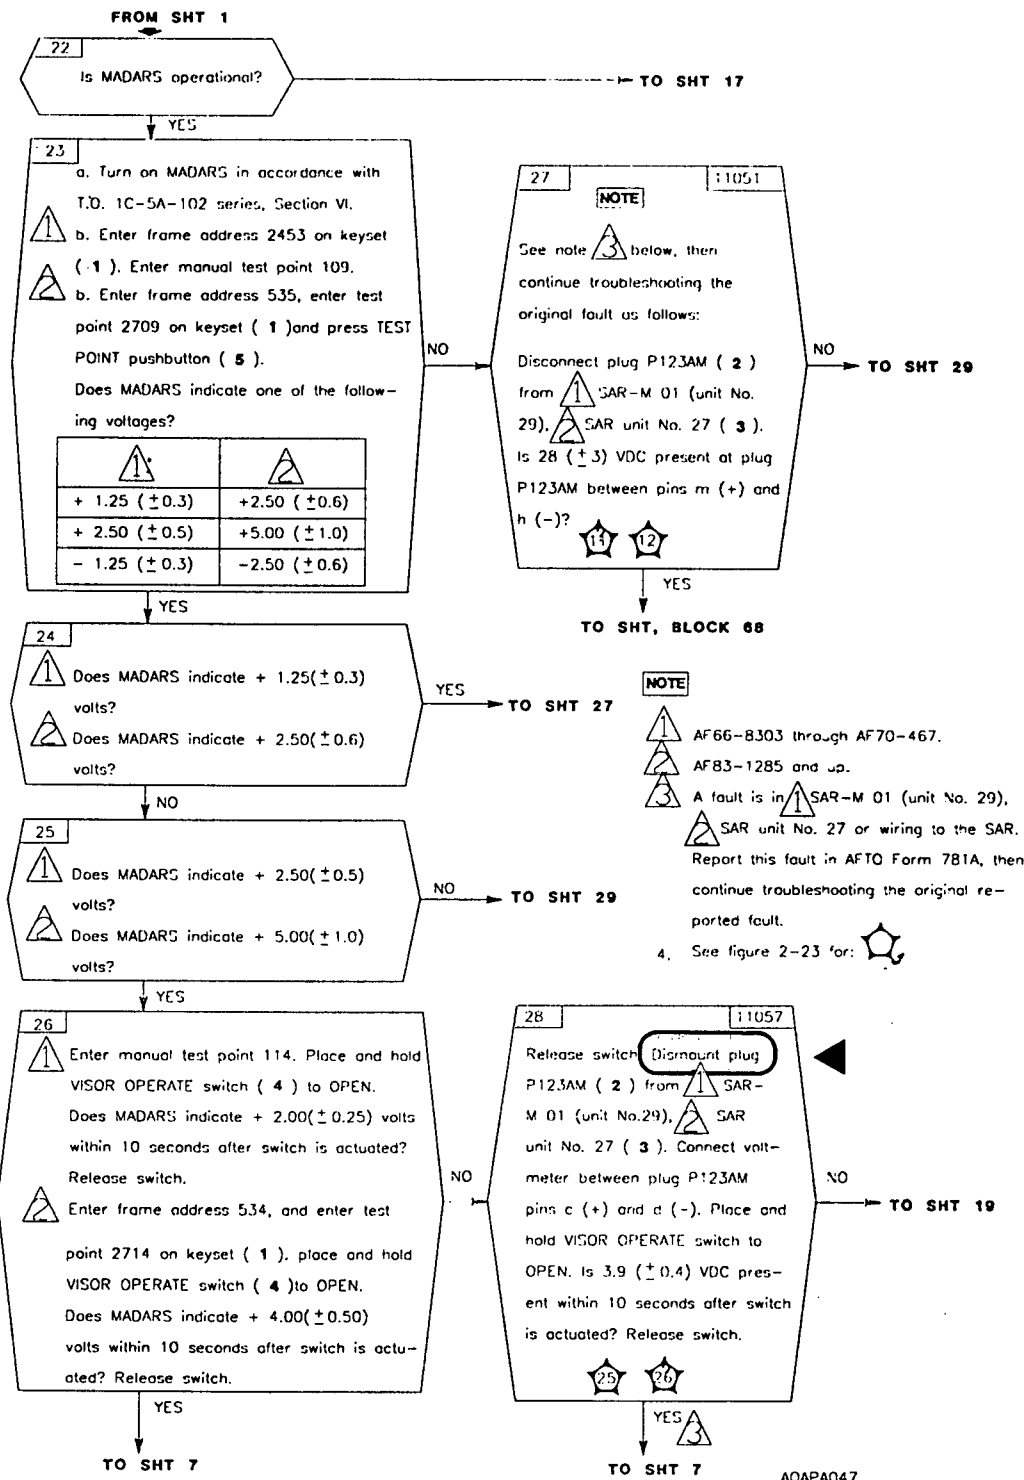 FROM SHT 1
22
Is MADARS operational?
TO SHT 17
YES
23
a. Turn on MADARS in accordance with
T.O. 1C-5A-102 series, Section VI.
1
b. Enter frame address 2453 on keyset
( 1 ). Enter manual test point 109.
2
b. Enter frame address 535, enter test
point 2709 on keyset ( 1 )and press TEST
POINT pushbutton ( 5 ).
Does MADARS indicate one of the follow-
ing voltages?
1 2
+ 1.25 (±0.3) +2.50 (±0.6)
+ 2.50 (±0.5) +5.00 (±1.0)
- 1.25 (±0.3) -2.50 (±0.6)
NO
YES
27 11051
NOTE
See note 3 below, then
continue troubleshooting the
original fault as follows:
Disconnect plug P123AM ( 2 )
from 1 SAR-M 01 (unit No.
29), 2 SAR unit No. 27 ( 3 ).
Is 28 (±3) VDC present at plug
P123AM between pins m (+) and
h (-)?
11 12
NO
TO SHT 29
YES
TO SHT, BLOCK 68
24
1 Does MADARS indicate + 1.25(±0.3)
volts?
2 Does MADARS indicate + 2.50(±0.6)
volts?
YES
TO SHT 27
NO
NOTE
1 AF66-8303 through AF70-467.
2 AF83-1285 and up.
3 A fault is in 1 SAR-M 01 (unit No. 29),
2 SAR unit No. 27 or wiring to the SAR.
Report this fault in AFTO Form 781A, then
continue troubleshooting the original re-
ported fault.
4. See figure 2-23 for:
25
1 Does MADARS indicate + 2.50(±0.5)
volts?
2 Does MADARS indicate + 5.00(±1.0)
volts?
NO
TO SHT 29
YES
26
1 Enter manual test point 114. Place and hold
VISOR OPERATE switch ( 4 ) to OPEN.
Does MADARS indicate + 2.00(±0.25) volts
within 10 seconds after switch is actuated?
Release switch.
2 Enter frame address 534, and enter test
point 2714 on keyset ( 1 ). place and hold
VISOR OPERATE switch ( 4 )to OPEN.
Does MADARS indicate + 4.00(±0.50)
volts within 10 seconds after switch is actu-
ated? Release switch.
NO
YES
TO SHT 7
28 11057
Release switch Dismount plug
P123AM ( 2 ) from 1 SAR-
M 01 (unit No.29), 2 SAR
unit No. 27 ( 3 ). Connect volt-
meter between plug P123AM
pins c (+) and d (-). Place and
hold VISOR OPERATE switch to
OPEN. Is 3.9 (±0.4) VDC pres-
ent within 10 seconds after switch
is actuated? Release switch.
25 26
NO
TO SHT 19
YES 3
TO SHT 7
AOAPA047